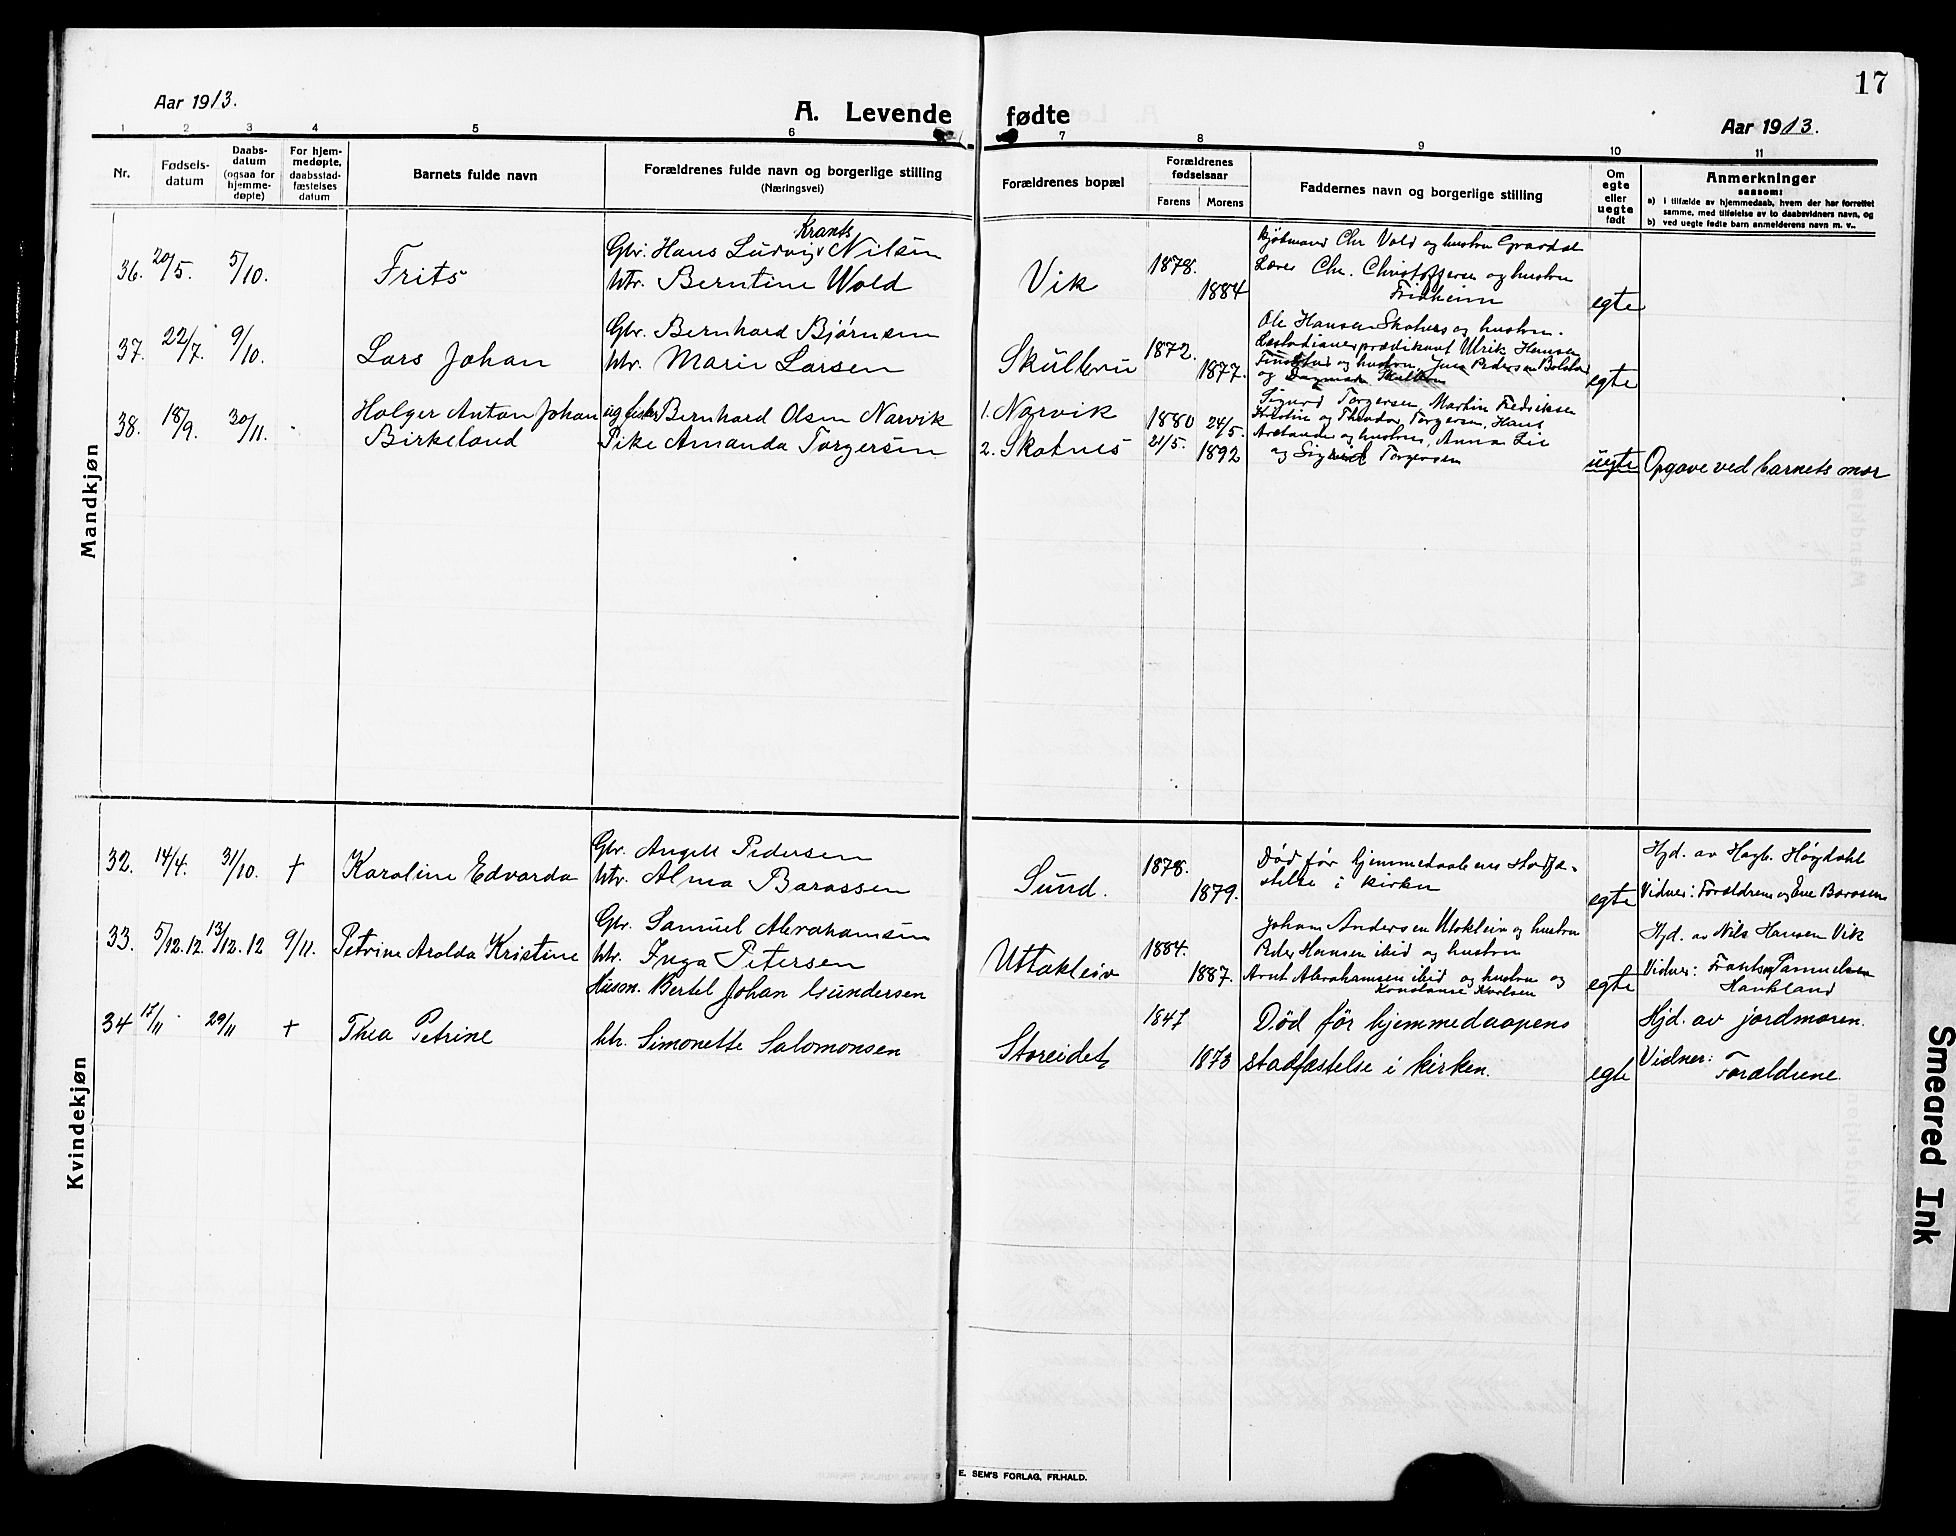 17
Aar 1913.
A. Levende fødte
Aar 1913.
1 2 3 4 5 6 7 8 9 10 11
Nr.
Fødsels-
datum
Daabs-
datum
(ogsaa for
hjemme-
døpte)
For hjem-
medøpte,
daabsstad-
fæstelses
datum
Barnets fulde navn
Forældrenes fulde navn og borgerlige stilling
(Næringsvei)
Forældrenes bopæl
Forældrenes
fødselsaar
Farens Morens
Faddernes navn og borgerlige stilling
Om
egte
eller
uegte
født
Anmerkninger
saasom:
a) i tilfælde av hjemmedaab, hvem der har forrettet
samme, med tilføielse av to daabsvidners navn, og
b) ved uegte fødte barn anmelderens navn m. v..
Mandkjøn
36. 20/5. 5/10. Frits
Krants
Gbr. Hans Ludvig Nilsen
htr. Berntine Wold
Vik
1878.
1884
Kjøbmand Chr Vold og hustru Gravdal
Lærer Chr. Christoffersen og hustru
Fridheim
egte
37. 22/7. 9/10. Lars Johan
Gbr. Bernhard Bjørnsen
htr. Marie Larsen
Skulbru
1872.
1877.
Ole Hansen Skotnes og hustru.
Læstadianerprædikant Ulrik Hansen
og hustru, Jens Pedersen
og Dagmar Skulbru
egte
38. 18/9. 30/11.
Holger Anton Johan
Birkeland
Bernhard Olsen Narvik
Pike Amanda Torgersen
1. Narvik
2. Skotnes
1880 24/5.
21/5. 1892
Sigurd Torgersen, Martin Fredriksen
Kristin og Theodor Torgersen, Hans
og hustru, Anna Lie
og Sigrid Torgersen
uegte
Opgave ved barnets mor
Kvindekjøn
32. 14/4. 31/10. + Karoline Edvarda
Gbr. Angell Pedersen
htr. Alma Barassen
Sund.
1878.
1879.
Død før hjemmedaabens stadfæ-
stelse i kirken
egte
Hjd. av Hagb. Høgdahl
Vidner: Forældrene og Ene Barasen
33. 5/12.12. 13/12.12 9/11. Petrine Aralda Kristine
Gbr. Samuel Abrahamsen
htr. Inga Petersen
Uttakleiv
1884.
1887.
Johan Andersen Utakleiv og hustru
Peder Hansen ibid og hustru
Arnt Abrahamsen ibid og hustru og
Konstanse Karlsen
egte
Hjd. av Nils Hansen Vik
Vidner: Frants Samuelsen
Haukland
34 17/11 29/11 + Thea Petrine
Husm. Bertel Johan Gundersen
htr. Simonette Salomonsen
Storeidet
1847
1873
Død før hjemmedaapens
stadfæstelse i kirken.
egte
Hjd. av jordmoren.
Vidner: Forældrene.
E. SEM'S FORLAG, FR.HALD.
Smeared Ink